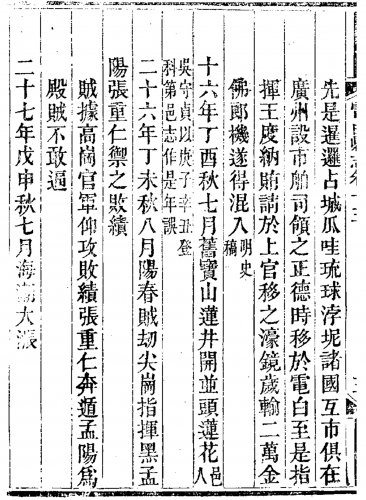 先是暹邏占城瓜哇琉球浡坭諸國互市俱在
廣州設市舶司領之正德時移於電白至是指
揮王度納賄請於上官移之濠鏡歲輸二萬金
佛郎機遂得混入明史稿
十六年丁酉秋七月舊寶山蓮井開並頭蓮花邑人
吳守貞以庚子辛丑登
科第邑志作是年誤
二十六年丁未秋八月陽春賊刧尖崗指揮黑孟
陽張重仁禦之敗績
賊據高崗官軍仰攻敗績張重仁奔遁孟陽爲
殿賊不敢逼
二十七年戊申秋七月海潮大漲